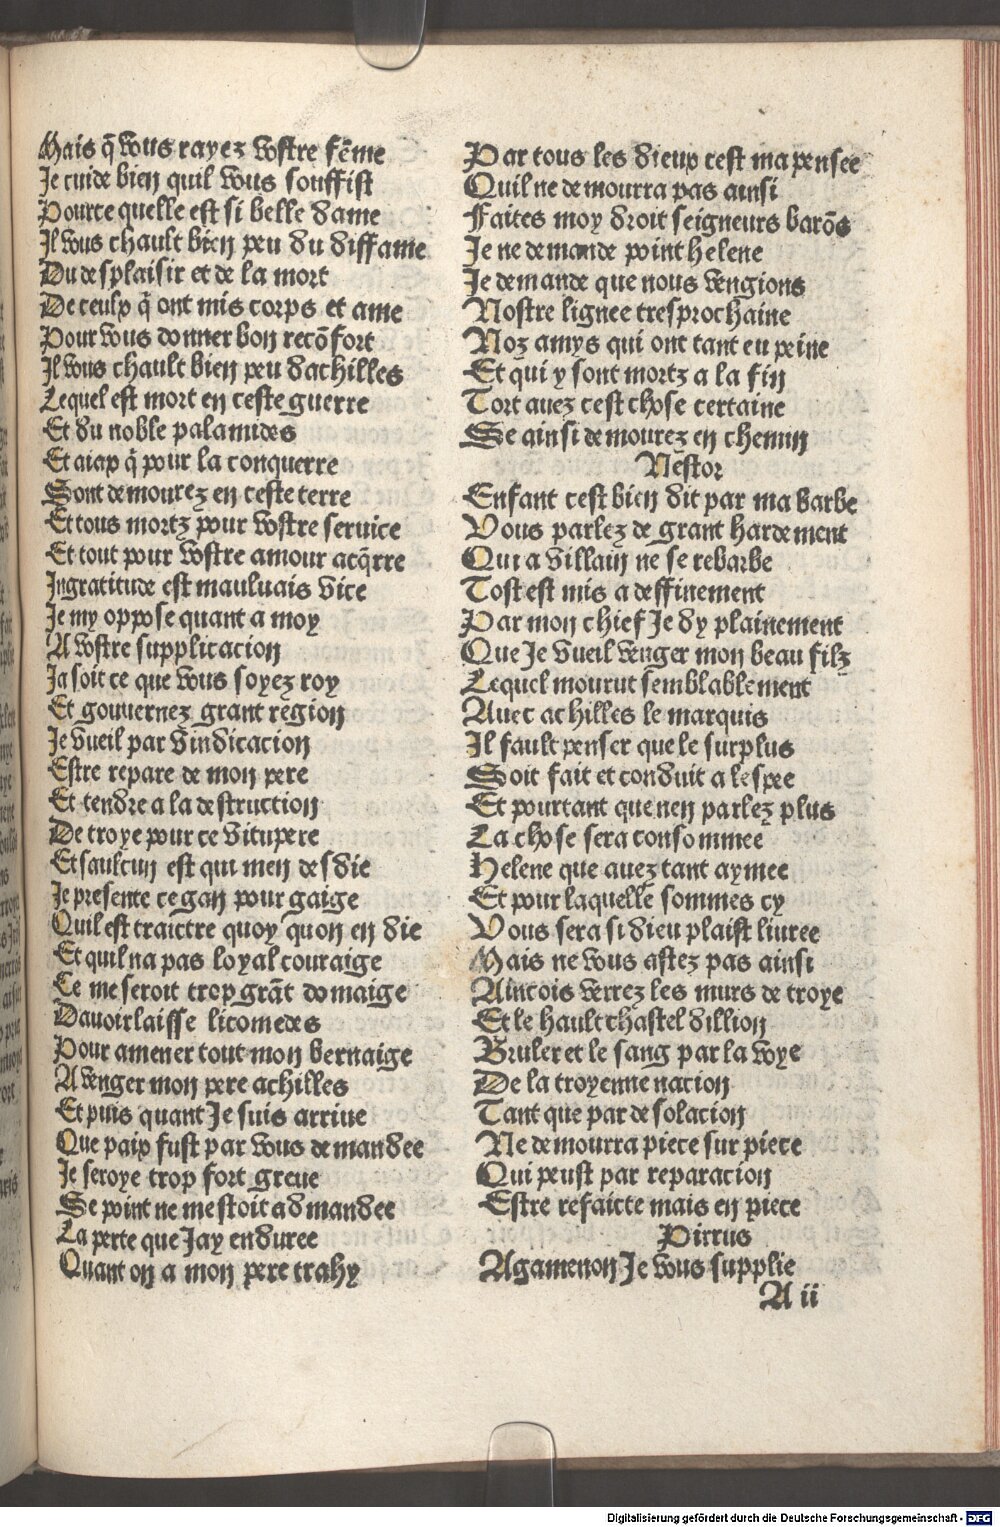 Mais q̄ vous rayez vostre fēme
Je cuide bien quil vous souffist
Pource quelle est si belle dame
Il vous chault bien peu du diffame
Du desplaisir et de la mort
De ceulx q̄ ont mis corps et ame
Pour vous donner bon recōfort
Il vous chault bien peu dachilles
Lequel est mort en ceste guerre
Et du noble palamides
Et aiax q̄ pour la conquerre
Sont demourez en ceste terre
Et tous mortz pour vostre seruice
Et tout pour vostre amour acq̄rre
Ingratitude est mauluais vice
Je my oppose quant a moy
A vostre supplicacion
Ja soit ce que vous soyez roy
Et gouuernez grant region
Je vueil par vindicacion
Estre repare de mon pere
Et tendre a la destruction
De troye pour ce vitupere
Et saulcun est qui men desdie
Je presente ce gan pour gaige
Quil est traictre quoy quon en die
Et quil na pas loyal couraige
Ce me seroit trop grāt domaige
Dauoir laisse licomedes
Pour amener tout mon bernaige
A venger mon pere achilles
Et puis quant Je suis arriue
Que paix fust par vous demandee
Je seroye trop fort greue
Se point ne mestoit admandee
La perte que Jay enduree
Quant on a mon pere trahy
Par tous les dieux cest ma pensee
Quil ne demourra pas ainsi
Faites moy droit seigneurs barōs
Je ne demande point helene
Je demande que nous vengions
Nostre lignee tresprochaine
Noz amys qui ont tant eu peine
Et qui y sont mortz a la fin
Tort auez cest chose certaine
Se ainsi demourez en chemin
Nestor
Enfant cest bien dit par ma barbe
Vous parlez de grant hardement
Qui a villain ne se rebarbe
Tost est mis a deffinement
Par mon chief Je dy plainement
Que Je vueil venger mon beau filz
Lequel mourut semblablement
Auec achilles le marquis
Il fault penser que le surplus
Soit fait et conduit a lespee
Et pourtant que nen parlez plus
La chose sera consommee
Helene que auez tant aymee
Et pour laquelle sommes cy
Vous sera si dieu plaist liuree
Mais ne vous astez pas ainsi
Aincois verrez les murs de troye
Et le hault chastel dillion
Bruler et le sang par la voye
De la troyenne nacion
Tant que par desolacion
Ne demourra piece sur piece
Qui peust par reparacion
Estre refaicte mais en piece
Pirrus
Agamenon Je vous supplie
A ii
Digitalisierung gefördert durch die Deutsche Forschungsgemeinschaft - DFG